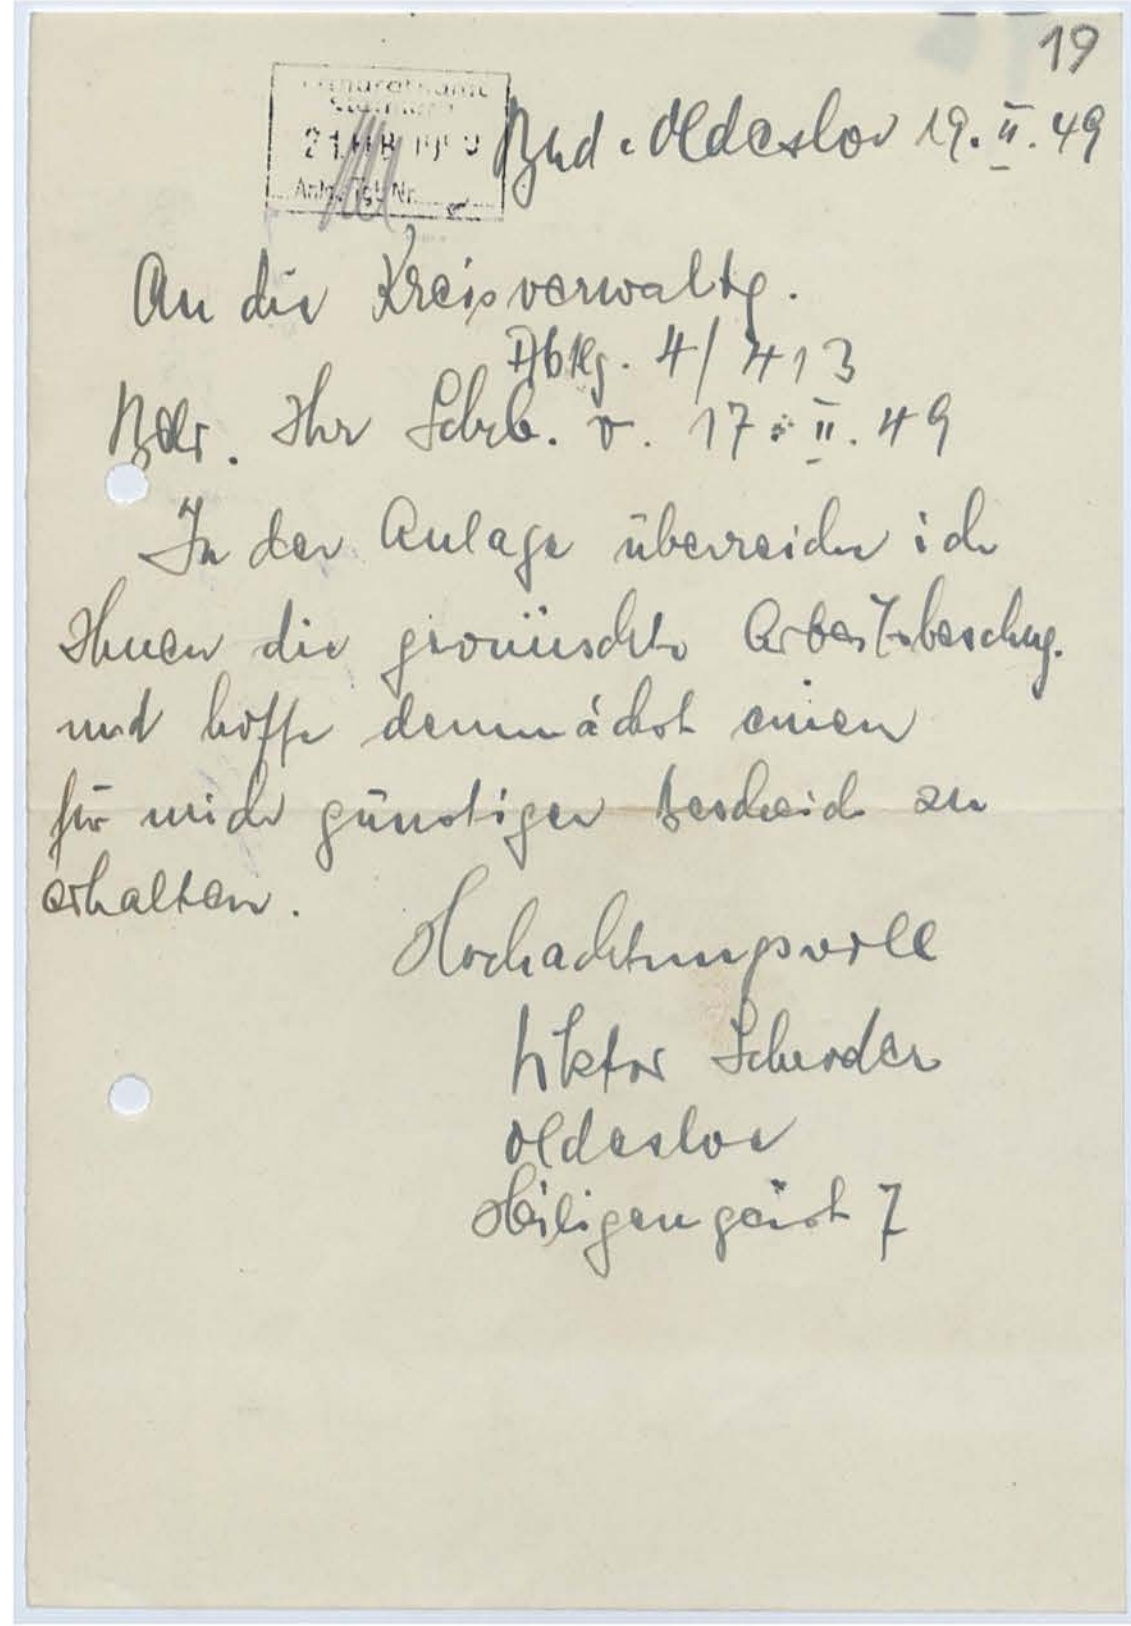 19
21. FEB. 1949
Bad. Oldesloe 19. II. 49
An die Kreisverwaltg.
Abtlg. 4/413
Betr. Ihr Schrb. v. 17. II. 49
In der Anlage überreiche ich
Ihnen die gewünschte Arbeitsbeschng.
und hoffe demnächst einen
für mich günstigen Bescheid zu
erhalten.
Hochachtungsvoll
Viktor Schroder
Oldesloe
Heiligengeist 7